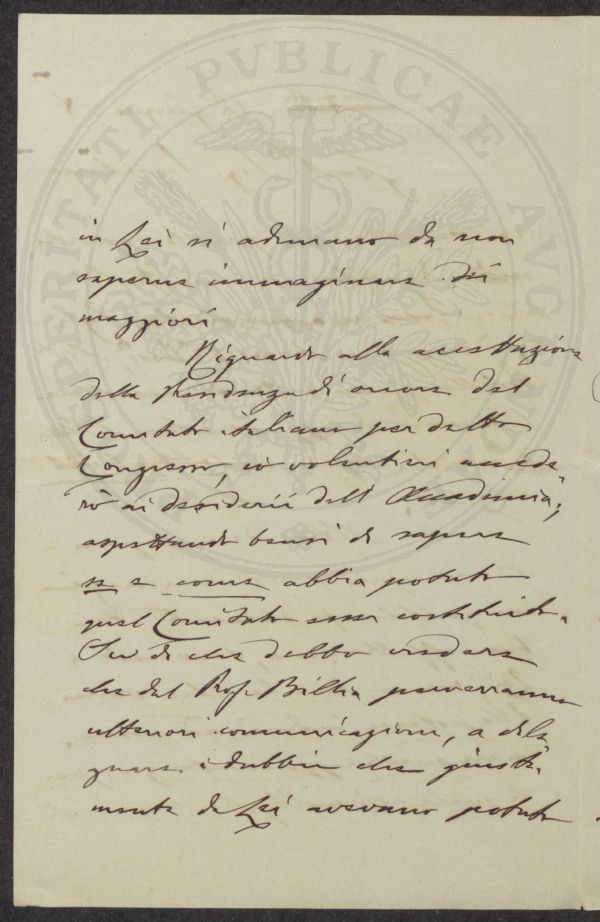 PROSPERITATI PVBLICAE AVGENDAE
in Lei si adunano da non
saperne immaginare dei
maggiori
Riguardo alla accettazione
della Presidenza di onore del
Comitato italiano per detto
Congresso, io volentieri accede-
rò ai desiderii dell'Accademia,
aspettando bensì di sapere
se e come abbia potuto
quel Comitato esser costituito.
Su di che debbo credere
che dal Prof. Billia perverranno
ulteriori comunicazioni, a dile-
guare i dubbii che giusta-
mente da Lei avevano potuto